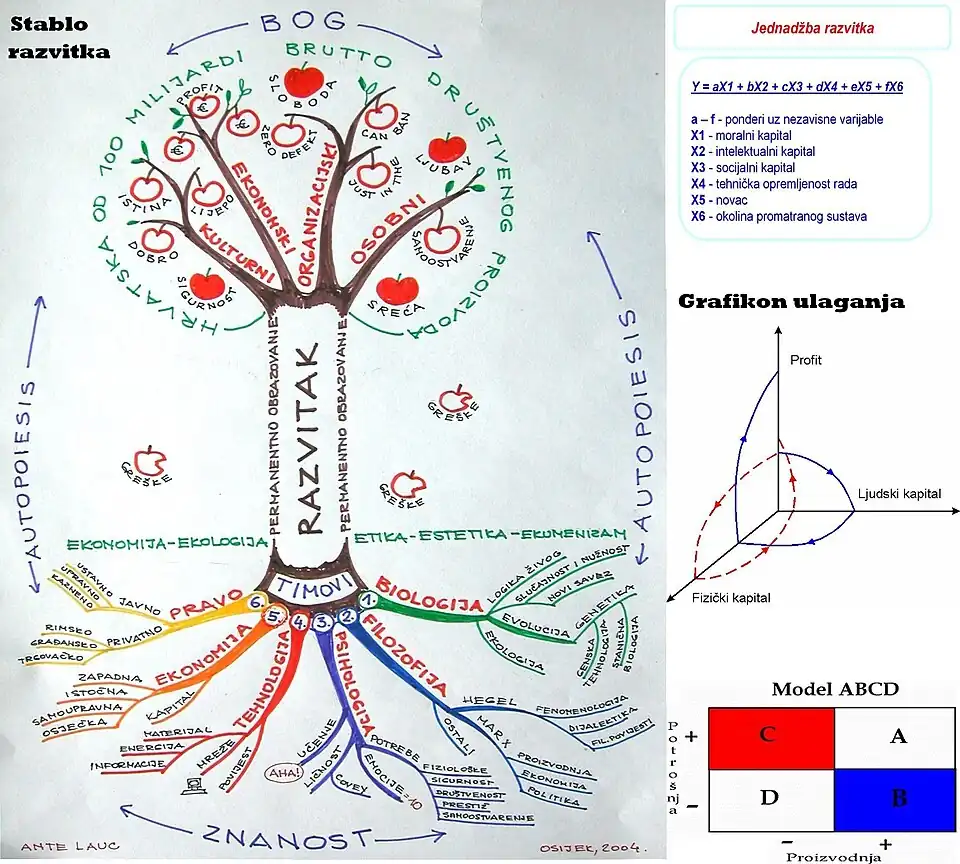 Stablo
razvitka
BOG
HRVATSKA OD 100 MILIJARDI BRUTTO DRUŠTVENOG PROIZVODA
PROFIT
€
€
€
SLOBODA
ZERO DEFEKT
CAN BAN
JUST IN TIME
LJUBAV
ISTINA
LIJEPO
DOBRO
SIGURNOST
SAMOOSTVARENJE
SREĆA
KULTURNI
EKONOMSKI
ORGANIZACIJSKI
OSOBNI
AUTOPOIESIS
AUTOPOIESIS
PERMANENTNO OBRAZOVANJE
RAZVITAK
PERMANENTNO OBRAZOVANJE
GREŠKE
GREŠKE
GREŠKE
EKONOMIJA-EKOLOGIJA
ETIKA-ESTETIKA-EKUMENIZAM
TIMOVI
6.
5.
4.
3.
2.
1.
PRAVO
JAVNO
USTAVNO
UPRAVNO
KAZNENO
PRIVATNO
RIMSKO
GRAĐANSKO
TRGOVAČKO
EKONOMIJA
ZAPADNA
ISTOČNA
SAMOUPRAVNA
OSJEČKA
KAPITAL
TEHNOLOGIJA
MATERIJAL
ENERGIJA
INFORMACIJE
MREŽE
POVIJEST
PSIHOLOGIJA
UČENJE
AHA!
LIČNOST
COVEY
EMOCIJE=10
POTREBE
FIZIOLOŠKE
SIGURNOST
DRUŠTVENOST
PRESTIŽ
SAMOOSTVARENJE
FILOZOFIJA
HEGEL
FENOMENOLOGIJA
DIJALEKTIKA
FIL.POVIJESTI
MARX
PROIZVODNJA
EKONOMIJA
POLITIKA
OSTALI
BIOLOGIJA
LOGIKA ŽIVOG
SLUČAJNOST I NUŽNOST
NOVI SAVEZ
EVOLUCIJA
GENETIKA
GENSKA TEHNOLOGIJA
STANIČNA BIOLOGIJA
EKOLOGIJA
ZNANOST
ANTE LAUC
OSIJEK, 2004.
Jednadžba razvitka
Y = aX1 + bX2 + cX3 + dX4 + eX5 + fX6
a – f - ponderi uz nezavisne varijable
X1 - moralni kapital
X2 - intelektualni kapital
X3 - socijalni kapital
X4 - tehnička opremljenost rada
X5 - novac
X6 - okolina promatranog sustava
Grafikon ulaganja
Profit
Ljudski kapital
Fizički kapital
Model ABCD
Potrošnja
+
-
C
A
D
B
- +
Proizvodnja